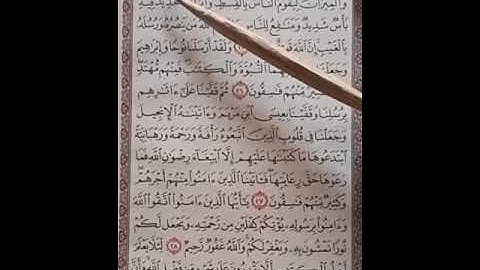 وَٱلْمِيزَانَ لِيَقُومَ ٱلنَّاسُ بِٱلْقِسْطِ
بَأْسٌ شَدِيدٌ وَمَنَٰفِعُ لِلنَّاسِ مَن يَنصُرُهُۥ وَرُسُلَهُۥ
بِٱلْغَيْبِ إِنَّ ٱللَّهَ وَلَقَدْ أَرْسَلْنَا نُوحًا وَإِبْرَٰهِيمَ
وَجَعَلْنَا ٱلنُّبُوَّةَ وَٱلْكِتَٰبَ فَمِنْهُم مُّهْتَدٍ
مِّنْهُمْ فَٰسِقُونَ ٢٦ ثُمَّ قَفَّيْنَا عَلَىٰٓ ءَاثَٰرِهِم
بِرُسُلِنَا وَقَفَّيْنَا بِعِيسَى ٱبْنِ مَرْيَمَ وَءَاتَيْنَٰهُ ٱلْإِنجِيلَ
وَجَعَلْنَا فِى قُلُوبِ ٱلَّذِينَ ٱتَّبَعُوهُ رَأْفَةً وَرَحْمَةً وَرَهْبَانِيَّةً
ٱبْتَدَعُوهَا مَا كَتَبْنَٰهَا عَلَيْهِمْ إِلَّا ٱبْتِغَآءَ رِضْوَٰنِ ٱللَّهِ فَمَا
رَعَوْهَا حَقَّ رِعَايَتِهَا فَـَٔاتَيْنَا ٱلَّذِينَ ءَامَنُوا۟ مِنْهُمْ أَجْرَهُمْ
وَكَثِيرٌ مِّنْهُمْ فَٰسِقُونَ ٢٧ يَٰٓأَيُّهَا ٱلَّذِينَ ءَامَنُوا۟ ٱتَّقُوا۟ ٱللَّهَ
وَءَامِنُوا۟ بِرَسُولِهِۦ يُؤْتِكُمْ كِفْلَيْنِ مِن رَّحْمَتِهِۦ وَيَجْعَل لَّكُمْ
نُورًا تَمْشُونَ بِهِۦ وَيَغْفِرْ لَكُمْ وَٱللَّهُ غَفُورٌ رَّحِيمٌ ٢٨ لِّئَلَّا يَعْلَمَ